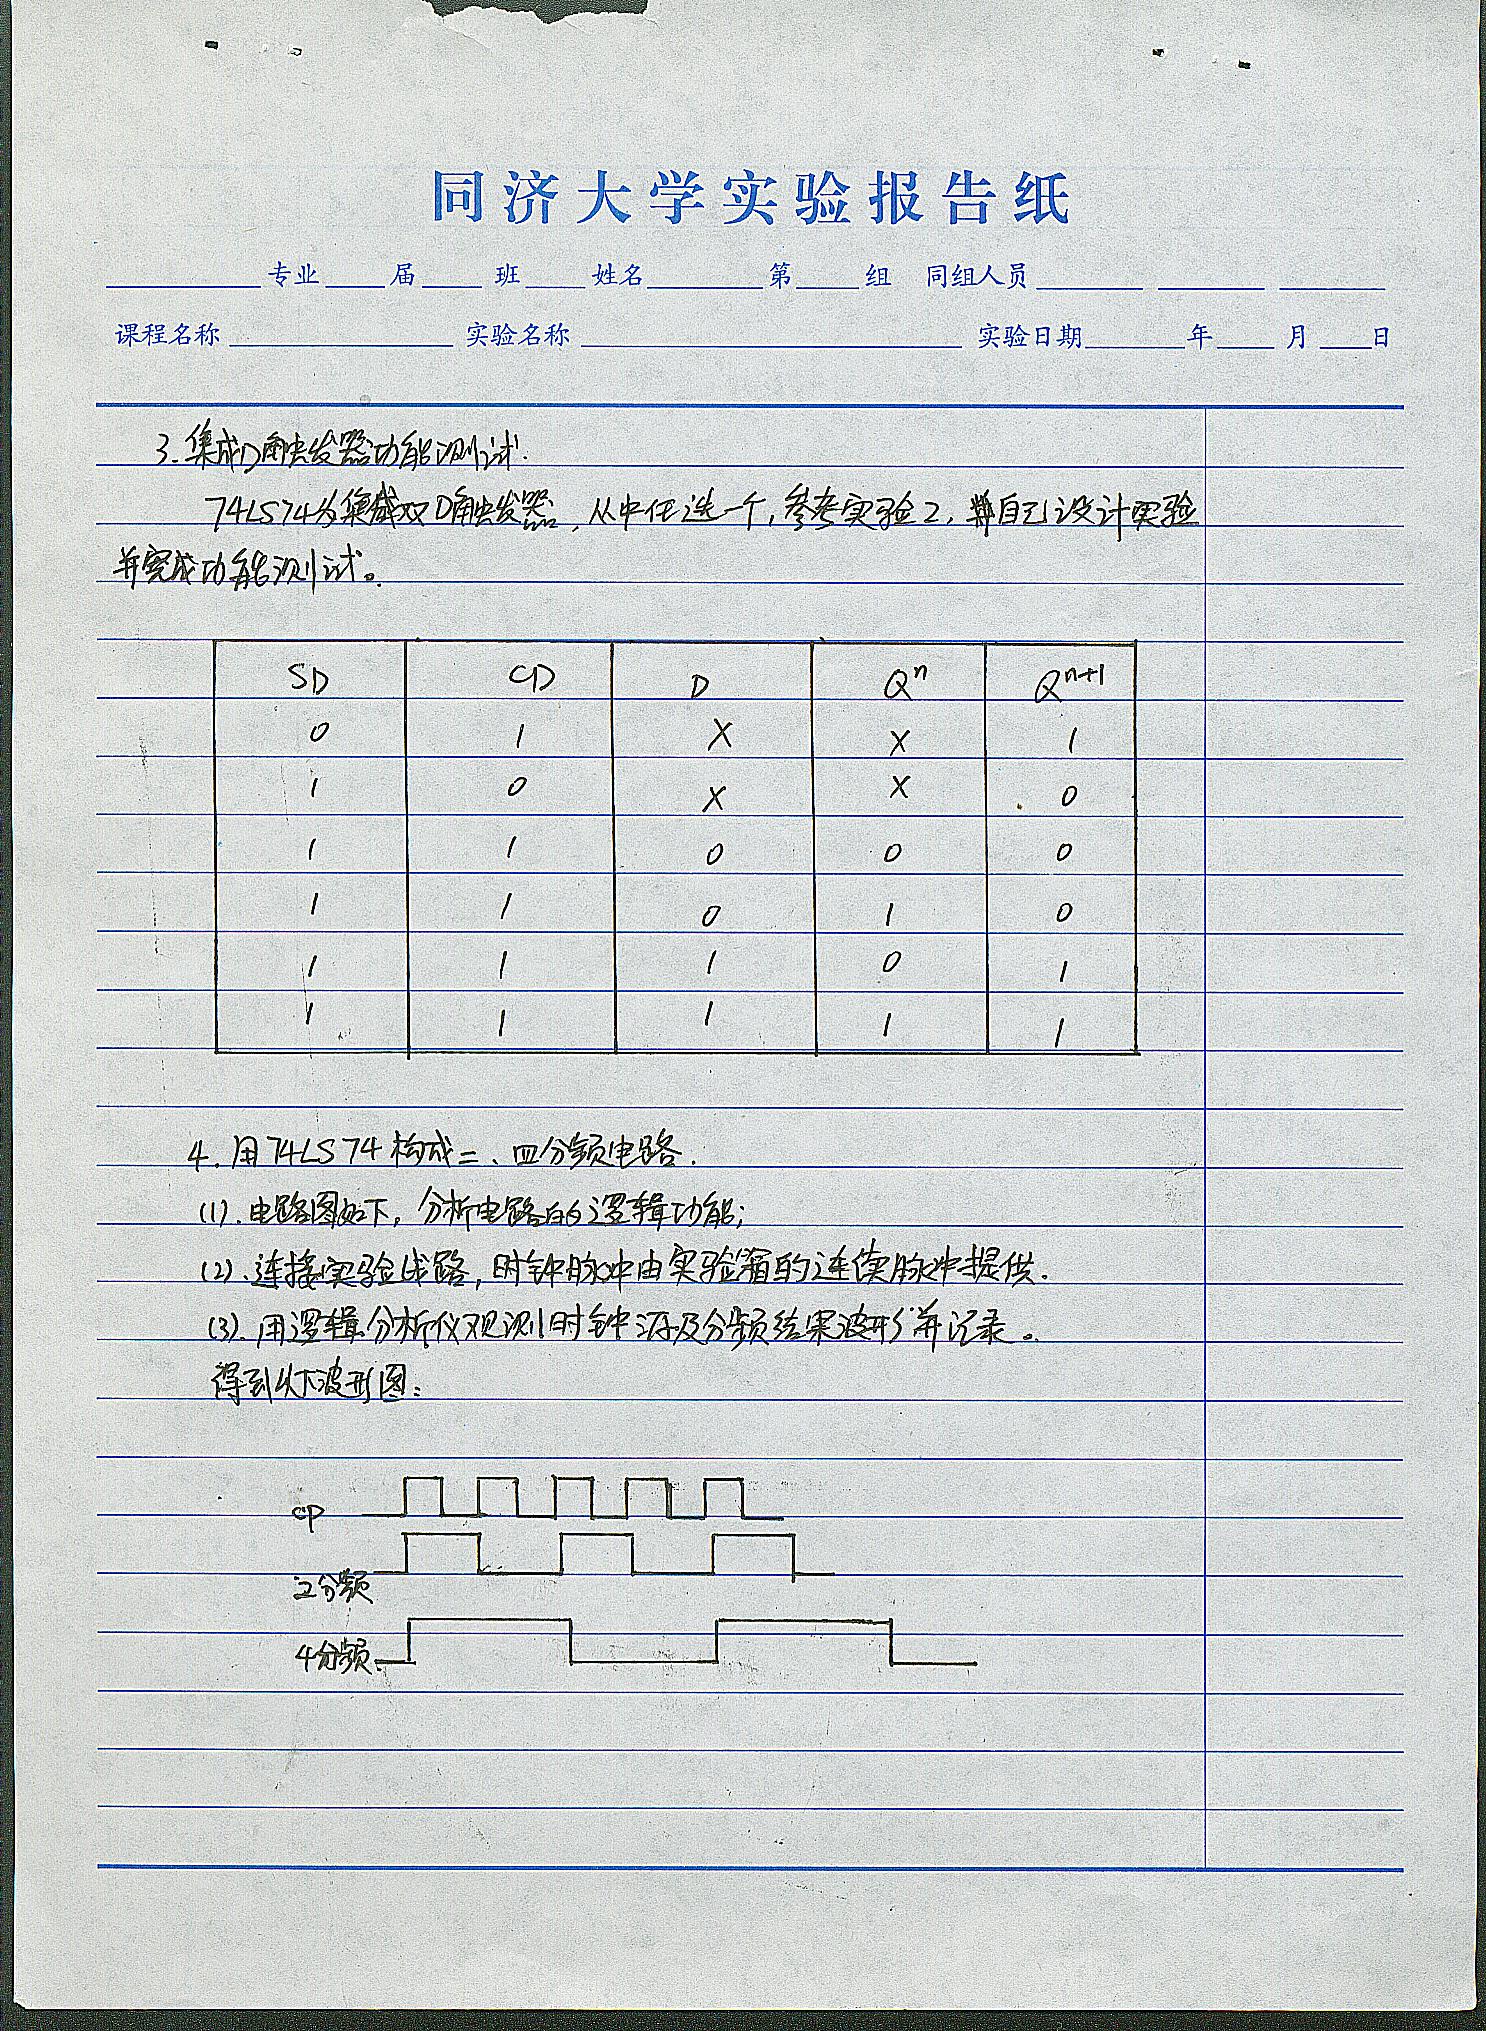 同济大学实验报告纸
专业 届 班 姓名 第 组 同组人员
课程名称 实验名称 实验日期 年 月 日
3. 集成D触发器功能测试.
74LS74为集成双D触发器，从中任选一个，参考实验2，自己设计实验
并完成功能测试。
SD CD D Qⁿ Qⁿ⁺¹
0 1 X X 1
1 0 X X 0
1 1 0 0 0
1 1 0 1 0
1 1 1 0 1
1 1 1 1 1
4. 用74LS74构成二、四分频电路.
(1). 电路图如下，分析电路的逻辑功能；
(2). 连接实验线路，时钟脉冲由实验箱的连续脉冲提供.
(3). 用逻辑分析仪观测时钟源及分频结果波形并记录。
得到以下波形图：
CP
2分频
4分频